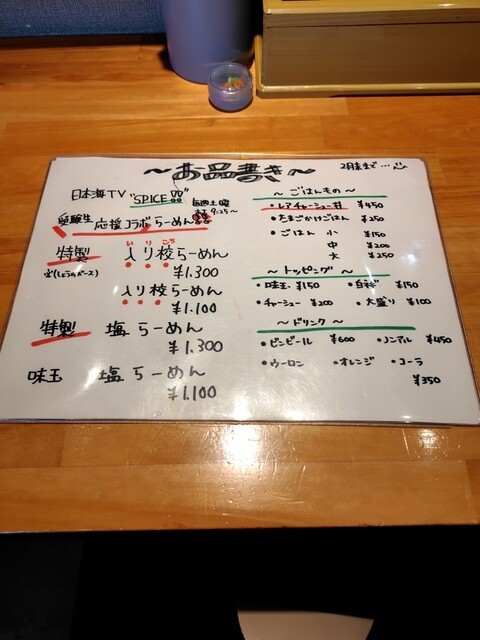 ～お品書き～
2月末まで…
日本海TV "SPICE!!"
毎週土曜
9:25～
受験生 応援コラボらーめん
特製 入り校らーめん
いりこう
¥1.300
入り校らーめん
¥1.100
特製 塩らーめん
¥1.300
味玉 塩らーめん
¥1.100
～ごはんもの～
・レアチャーシュー丼 ¥450
・たまごかけごはん ¥250
・ごはん 小 ¥150
中 ¥200
大 ¥250
～トッピング～
・味玉 ¥150 ・白ネギ ¥150
・チャーシュー ¥200 ・大盛り ¥100
～ドリンク～
・ビンビール ¥600 ・ノンアル ¥450
・ウーロン ・オレンジ ・コーラ
¥350